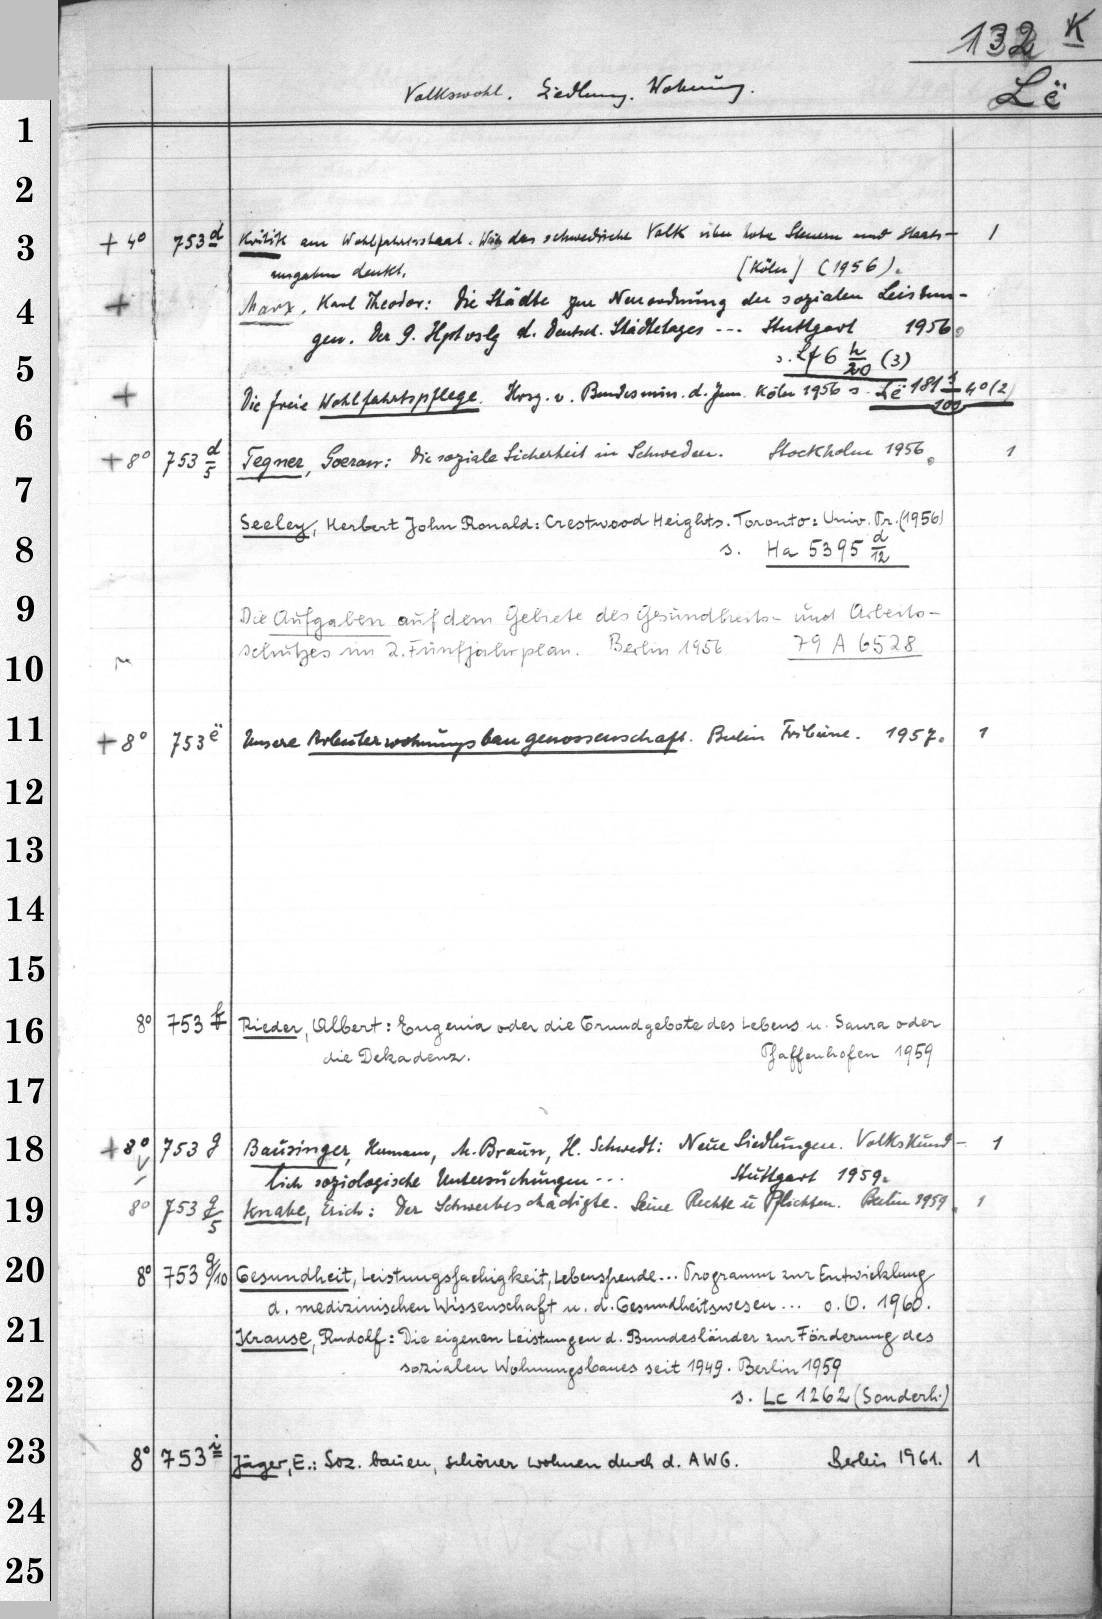 132 K
Volkswohl. Siedlung. Wohnung. Lë
1
2
3 + 4° 753 d Kritik am Wohlfahrtsstaat. Was das schwedische Volk über hohe Steuern und Staats- 1
ausgaben denkt. [Köln] (1956).
4 + Marx, Karl Theodor: Die Städte zur Neuordnung der sozialen Leistun-
gen. Der 9. Hptvslg d. Deutsch. Städtetages --- Stuttgart 1956.
5 s. Lf 6 h/20 (3)
+ Die freie Wohlfahrtspflege. Hrsg. v. Bundesmin. d. Inn. Köln 1956 s. Lë 181 /100 4° (2)
6
+ 8° 753 d/5 Tegner, Goeran: Die soziale Sicherheit in Schweden. Stockholm 1956. 1
7
Seeley, Herbert John Ronald: Crestwood Heights. Toronto: Univ. Pr. (1956)
8 s. Ha 5395 d/12
9 Die Aufgaben auf dem Gebiete des Gesundheits- und Arbeits-
10 schutzes im 2. Fünfjahrplan. Berlin 1956 79 A 6528
11 + 8° 753 ë Unsere Arbeiterwohnungsbaugenossenschaft. Berlin Tribüne. 1957. 1
12
13
14
15
16 8° 753 f Rieder, Albert: Eugenia oder die Grundgebote des Lebens u. Saura oder
die Dekadenz. Pfaffenhofen 1959
17
18 + 8° 753 g Bausinger, Hermann, M. Braun, H. Schwedt: Neue Siedlungen. Volkskund- 1
lich soziologische Untersuchungen --- Stuttgart 1959.
19 8° 753 g/5 Knabe, Erich: Der Schwerbeschädigte. Seine Rechte u Pflichten. Berlin 1959. 1
20 8° 753 g/10 Gesundheit, Leistungsfähigkeit, Lebensfreude... Programm zur Entwicklung
d. medizinischen Wissenschaft u. d. Gesundheitswesen ... o.O. 1960.
21 Krause, Rudolf: Die eigenen Leistungen d. Bundesländer zur Förderung des
sozialen Wohnungsbaues seit 1949. Berlin 1959
22 s. Lc 1262 (Sonderh.)
23 8° 753 i Jäger, E.: Soz. bauen, schöner wohnen durch d. AWG. Berlin 1961. 1
24
25